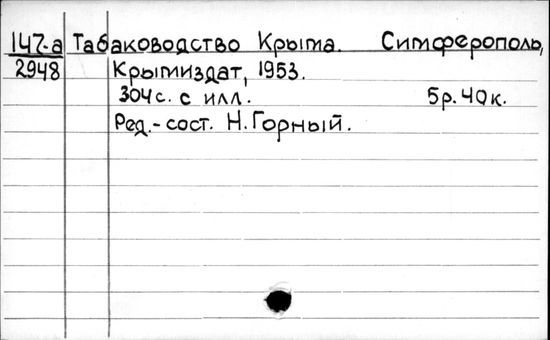 147-а Табаководство Крыма. Симферополь,
2948 Крымиздат, 1953.
304с. с илл. 5р.40к.
Ред.-сост. Н.Горный.